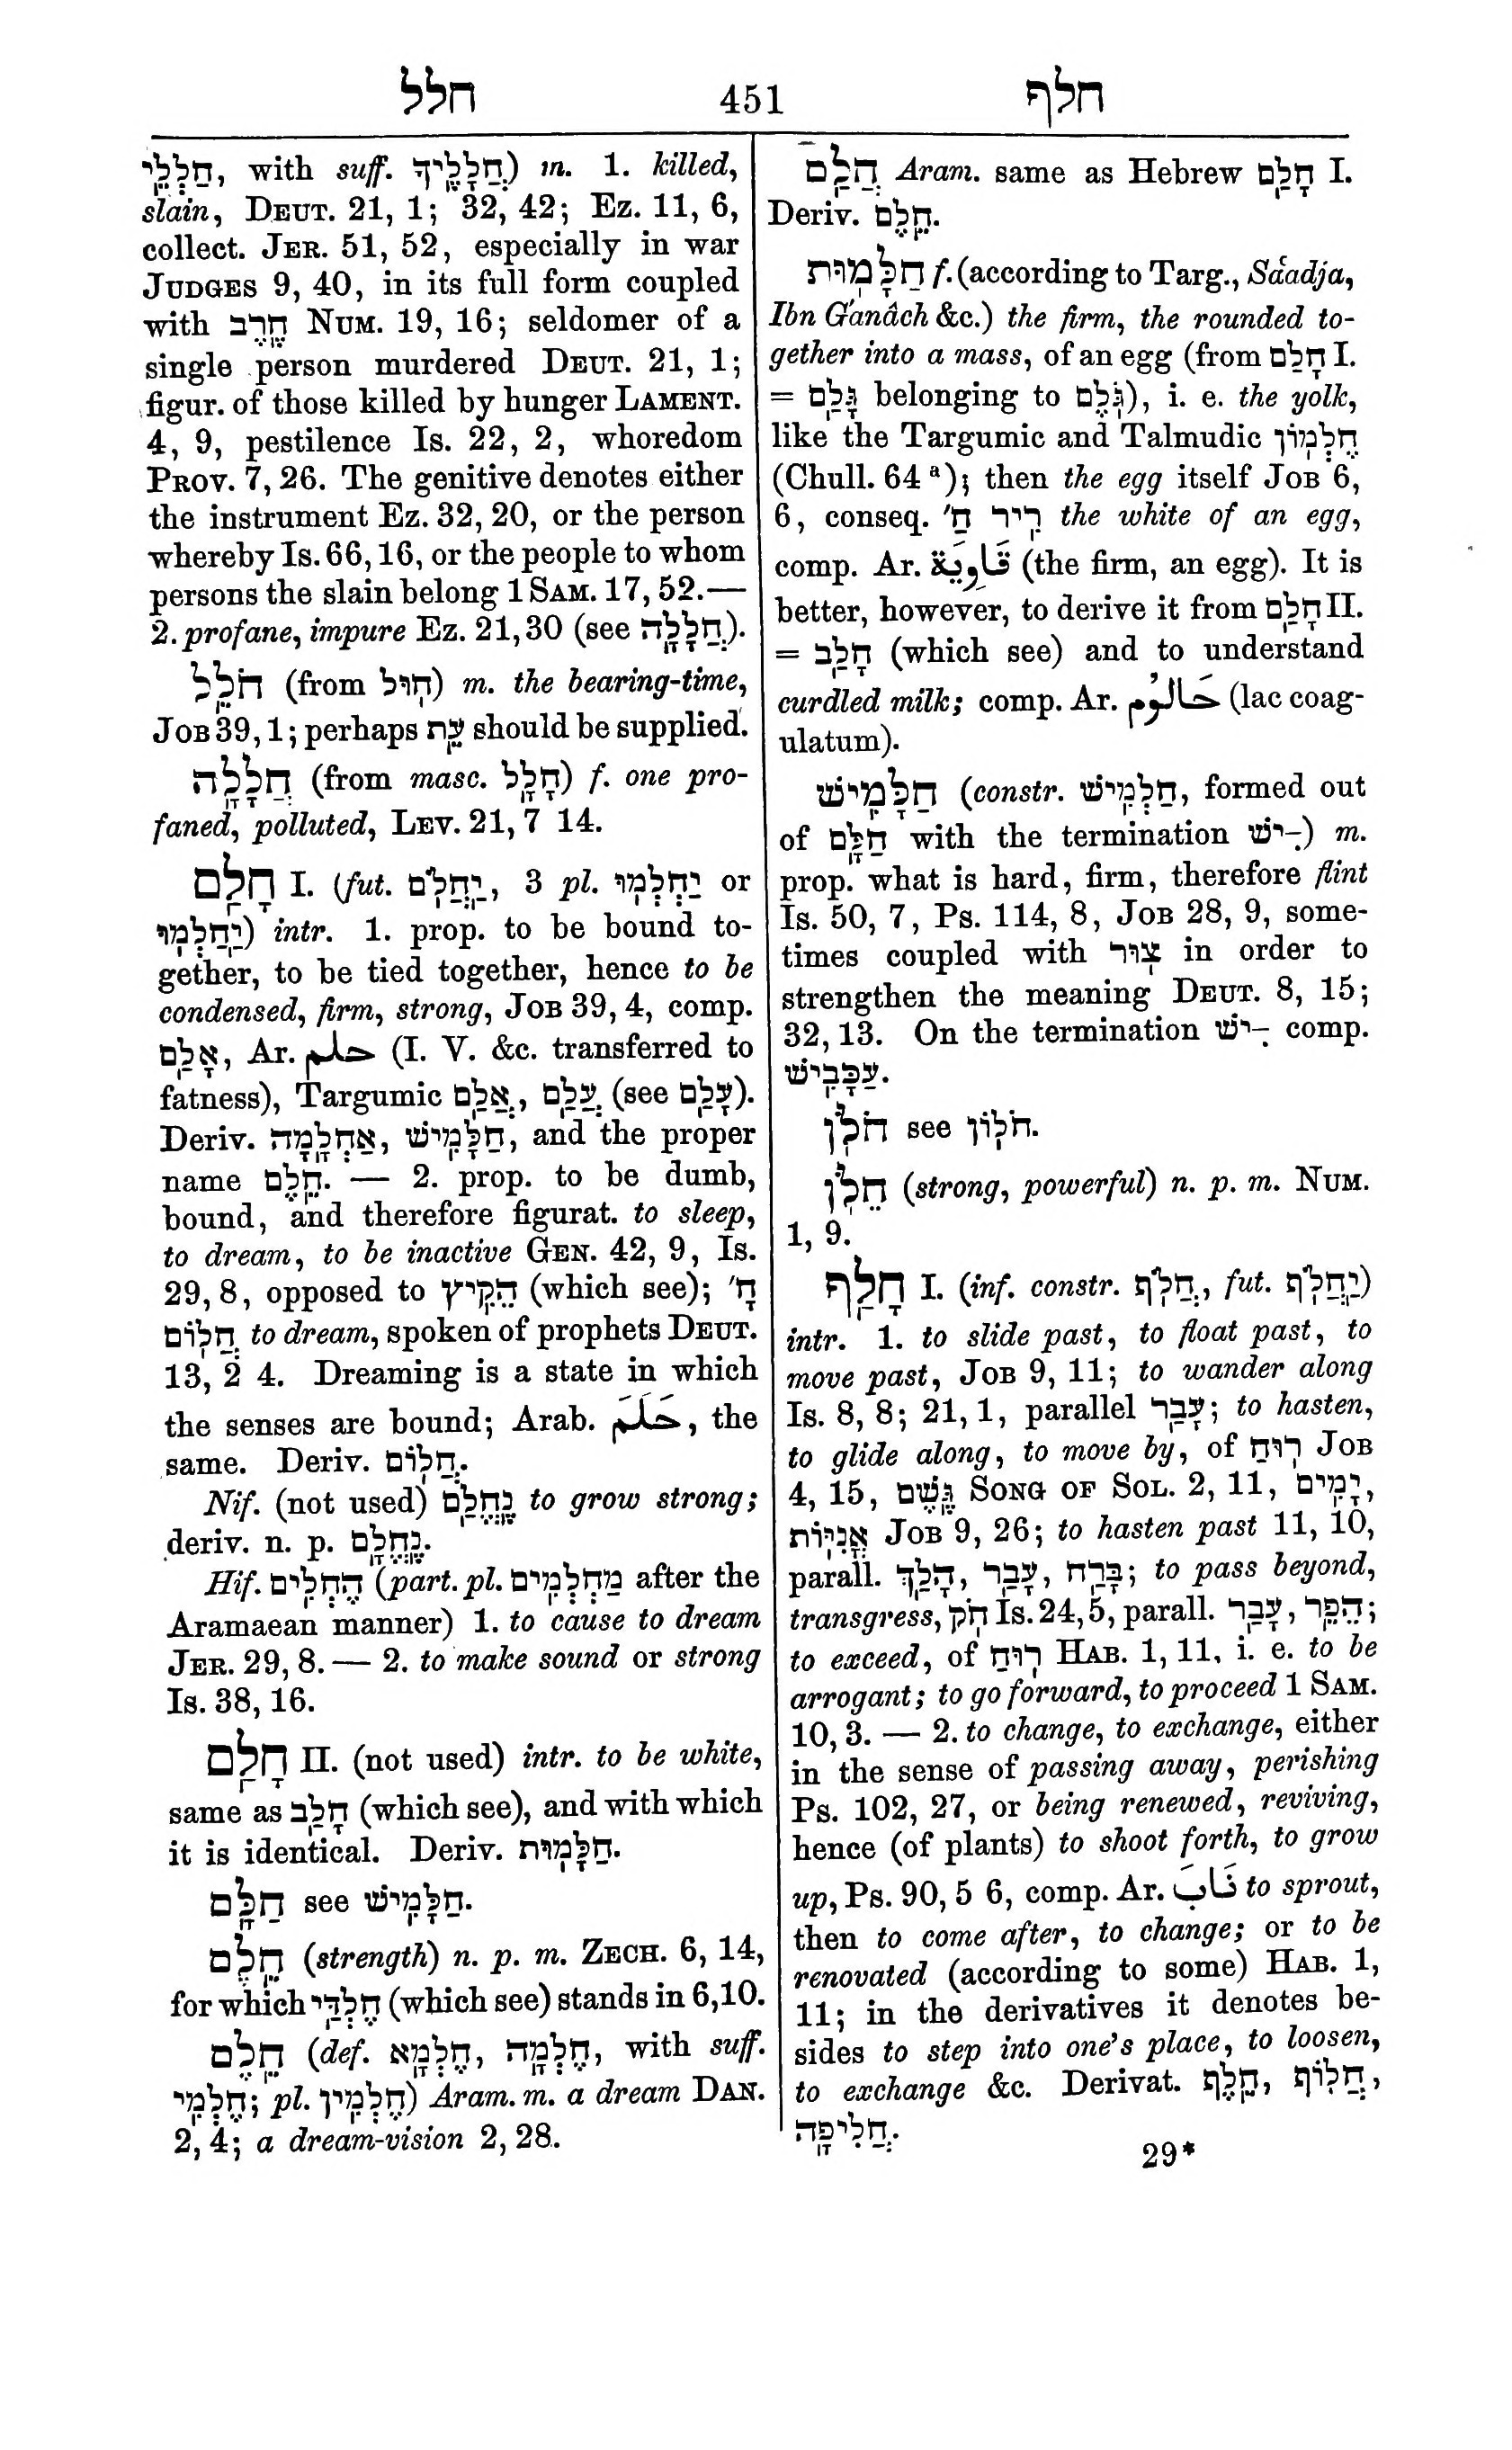 חלל 451 חלף
חַלְלֵי, with suff. חֲלָלֶיךָ) m. 1. killed,
slain, DEUT. 21, 1; 32, 42; Ez. 11, 6,
collect. JER. 51, 52, especially in war
JUDGES 9, 40, in its full form coupled
with חֶרֶב NUM. 19, 16; seldomer of a
single person murdered DEUT. 21, 1;
figur. of those killed by hunger LAMENT.
4, 9, pestilence Is. 22, 2, whoredom
PROV. 7, 26. The genitive denotes either
the instrument Ez. 32, 20, or the person
whereby Is. 66, 16, or the people to whom
persons the slain belong 1 SAM. 17, 52.—
2. profane, impure Ez. 21, 30 (see חֲלָלָה).
חֹלֵל (from חוּל) m. the bearing-time,
JOB 39, 1; perhaps עֵת should be supplied.
חֲלָלָה (from masc. חָלָל) f. one pro-
faned, polluted, LEV. 21, 7 14.
חָלַם I. (fut. יַחֲלֹם, 3 pl. יַחְלְמוּ or
יַחֲלְמוּ) intr. 1. prop. to be bound to-
gether, to be tied together, hence to be
condensed, firm, strong, JOB 39, 4, comp.
אָלַם, Ar. حلم (I. V. &c. transferred to
fatness), Targumic אֲלַם, עֲלַם (see עָלַם).
Deriv. אַחְלָמָה, חַלָּמִישׁ, and the proper
name חֵלֶם. — 2. prop. to be dumb,
bound, and therefore figurat. to sleep,
to dream, to be inactive GEN. 42, 9, Is.
29, 8, opposed to הֵקִיץ (which see); חָ׳
חֲלוֹם to dream, spoken of prophets DEUT.
13, 2 4. Dreaming is a state in which
the senses are bound; Arab. حَلَمَ, the
same. Deriv. חֲלוֹם.
Nif. (not used) נֶחֱלַם to grow strong;
deriv. n. p. נֶחֱלָם.
Hif. הֶחְלִים (part. pl. מַחְלְמִים after the
Aramaean manner) 1. to cause to dream
JER. 29, 8. — 2. to make sound or strong
Is. 38, 16.
חָלַם II. (not used) intr. to be white,
same as חָלַב (which see), and with which
it is identical. Deriv. חַלָּמוּת.
חַלָּם see חַלָּמִישׁ.
חֵלֶם (strength) n. p. m. ZECH. 6, 14,
for which חֶלְדַּי (which see) stands in 6, 10.
חֵלֶם (def. חֶלְמָא, חֶלְמָה, with suff.
חֶלְמִי; pl. חֶלְמִין) Aram. m. a dream DAN.
2, 4; a dream-vision 2, 28.
חֲלַם Aram. same as Hebrew חָלַם I.
Deriv. חֵלֶם.
חַלָּמוּת f. (according to Targ., Sáadja,
Ibn G'anâch &c.) the firm, the rounded to-
gether into a mass, of an egg (from חָלַם I.
= גָּלַם belonging to גֹּלֶם), i. e. the yolk,
like the Targumic and Talmudic חֶלְמוֹן
(Chull. 64 a); then the egg itself JOB 6,
6, conseq. רִיר חַ׳ the white of an egg,
comp. Ar. قَاوِيَة (the firm, an egg). It is
better, however, to derive it from חָלַם II.
= חָלַב (which see) and to understand
curdled milk; comp. Ar. حَالُوم (lac coag-
ulatum).
חַלָּמִישׁ (constr. חַלְמִישׁ, formed out
of חַלָּם with the termination ־ִישׁ) m.
prop. what is hard, firm, therefore flint
Is. 50, 7, Ps. 114, 8, JOB 28, 9, some-
times coupled with צוּר in order to
strengthen the meaning DEUT. 8, 15;
32, 13. On the termination ־ִישׁ comp.
עַכָּבִישׁ.
חֹלֹן see חֹלוֹן.
חֵלֹן (strong, powerful) n. p. m. NUM.
1, 9.
חָלַף I. (inf. constr. חֲלֹף, fut. יַחֲלֹף)
intr. 1. to slide past, to float past, to
move past, JOB 9, 11; to wander along
Is. 8, 8; 21, 1, parallel עָבַר; to hasten,
to glide along, to move by, of רוּחַ JOB
4, 15, גֶּשֶׁם SONG OF SOL. 2, 11, יָמִים,
אֳנִיּוֹת JOB 9, 26; to hasten past 11, 10,
parall. הָלַךְ, עָבַר, בָּרַח; to pass beyond,
transgress, חֹק Is. 24, 5, parall. עָבַר, הֵפֵר;
to exceed, of רוּחַ HAB. 1, 11, i. e. to be
arrogant; to go forward, to proceed 1 SAM.
10, 3. — 2. to change, to exchange, either
in the sense of passing away, perishing
Ps. 102, 27, or being renewed, reviving,
hence (of plants) to shoot forth, to grow
up, Ps. 90, 5 6, comp. Ar. نَابَ to sprout,
then to come after, to change; or to be
renovated (according to some) HAB. 1,
11; in the derivatives it denotes be-
sides to step into one's place, to loosen,
to exchange &c. Derivat. חֵלֶף, חֲלוֹף,
חֲלִיפָה.
29*